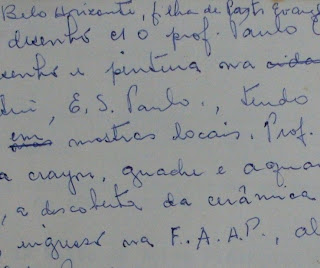 Belo Horizonte, filha de
desenho c/ o prof. Paulo
e pintura na cida
, E. S. Paulo., tendo
em mostras locais. Prof.
a crayon, guache e aqua
, a descoberta da cerâmica
, ingressa na F.A.A.P., al